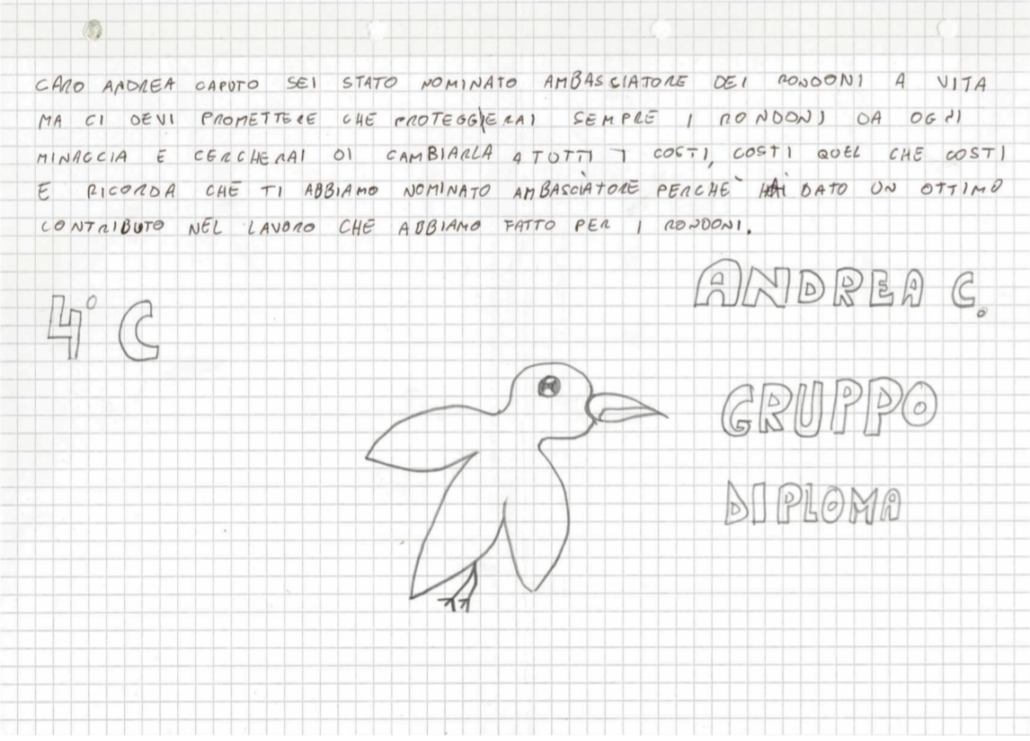 CARO ANDREA CAPUTO SEI STATO NOMINATO AMBASCIATORE DEI RONDONI A VITA
MA CI DEVI PROMETTERE CHE PROTEGGIERAI SEMPRE I RONDONI DA OGNI
MINACCIA E CERCHERAI DI CAMBIARLA A TUTTI I COSTI, COSTI QUEL CHE COSTI
E RICORDA CHE TI ABBIAMO NOMINATO AMBASCIATORE PERCHÈ HAI DATO UN OTTIMO
CONTRIBUTO NEL LAVORO CHE ABBIAMO FATTO PER I RONDONI.
ANDREA C.
4° C
GRUPPO
DIPLOMA